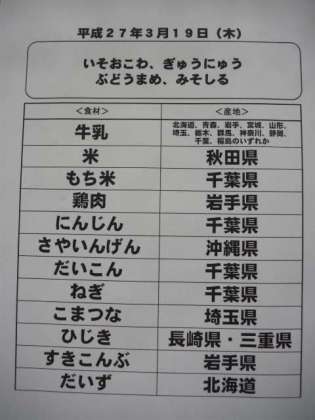 平成27年3月19日（木）
いそおこわ、ぎゅうにゅう
ぶどうまめ、みそしる
＜食材＞ ＜産地＞
牛乳 北海道、青森、岩手、宮城、山形、
埼玉、栃木、群馬、神奈川、静岡、
千葉、福島のいずれか
米 秋田県
もち米 千葉県
鶏肉 岩手県
にんじん 千葉県
さやいんげん 沖縄県
だいこん 千葉県
ねぎ 千葉県
こまつな 埼玉県
ひじき 長崎県・三重県
すきこんぶ 岩手県
だいず 北海道